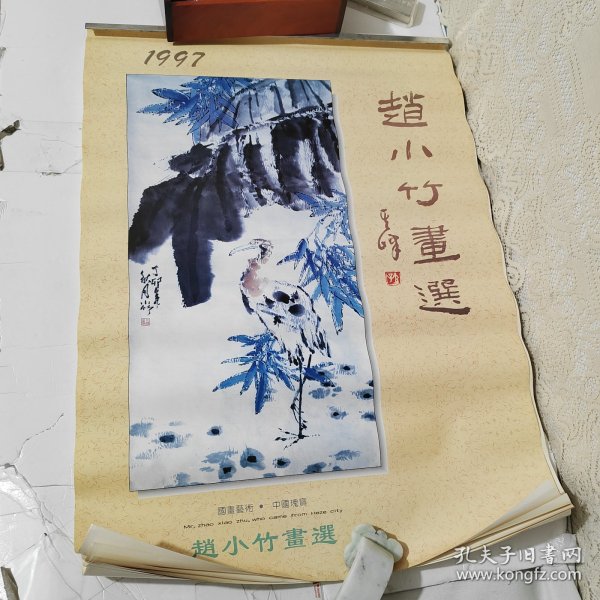 1997
趙小竹畫選
國畫藝術 • 中國瑰寶
Mr, zhao xiao zhu, who came from Heze city
趙小竹畫選
孔夫子旧书网
www.kongfz.com